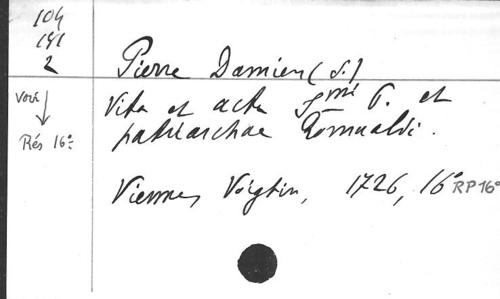 104
191
2
Pierre Damien (S.)
Voir
Vita et acta Smi P. et
patriarchae Romualdi.
Rés 16°
Viennes, Voigtin, 1726, 16° RP 16°